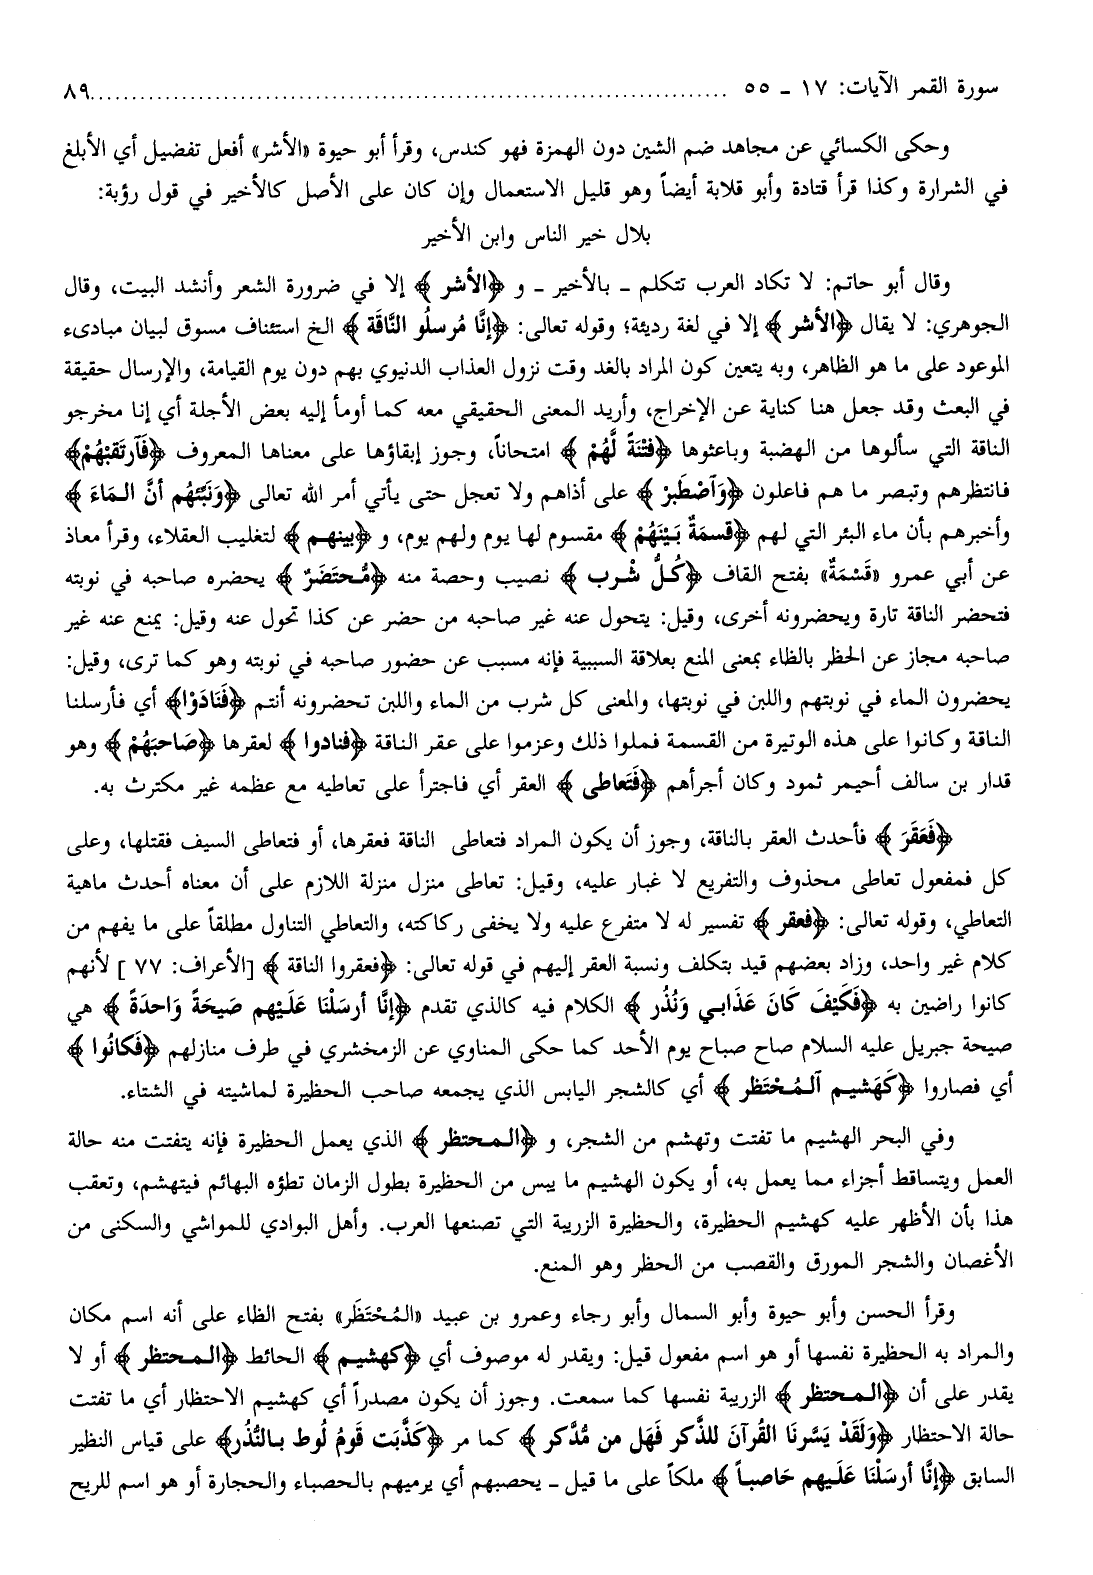 سورة القمر الآيات: ١٧ ـ ٥٥ ........................................................................... ٨٩
وحكى الكسائي عن مجاهد ضم الشين دون الهمزة فهو كندس، وقرأ أبو حيوة «الأشر» أفعل تفضيل أي الأبلغ
في الشرارة وكذا قرأ قتادة وأبو قلابة أيضاً وهو قليل الاستعمال وإن كان على الأصل كالأخير في قول رؤبة:
بلال خير الناس وابن الأخير
وقال أبو حاتم: لا تكاد العرب تتكلم ـ بالأخير ـ و ﴿الأشر ﴾ إلا في ضرورة الشعر وأنشد البيت، وقال
الجوهري: لا يقال ﴿الأشر ﴾ إلا في لغة رديئة؛ وقوله تعالى: ﴿إنَّا مُرسلُو النَّاقَة ﴾ الخ استئناف مسوق لبيان مبادىء
الموعود على ما هو الظاهر، وبه يتعين كون المراد بالغد وقت نزول العذاب الدنيوي بهم دون يوم القيامة، والإرسال حقيقة
في البعث وقد جعل هنا كناية عن الإخراج، وأريد المعنى الحقيقي معه كما أومأ إليه بعض الأجلة أي إنا مخرجو
الناقة التي سألوها من الهضبة وباعثوها ﴿فتْنَةً لَّهُمْ ﴾ امتحاناً، وجوز إبقاؤها على معناها المعروف ﴿فَٱرتَقبْهُمْ﴾
فانتظرهم وتبصر ما هم فاعلون ﴿وَٱصْطَبرْ ﴾ على أذاهم ولا تعجل حتى يأتي أمر الله تعالى ﴿وَنَبِّئهُم أنَّ المَاءَ ﴾
وأخبرهم بأن ماء البئر التي لهم ﴿قسمَةٌ بَيْنَهُمْ ﴾ مقسوم لها يوم ولهم يوم، و ﴿بينهم ﴾ لتغليب العقلاء، وقرأ معاذ
عن أبي عمرو «قَسْمَةٌ» بفتح القاف ﴿كُلُّ شْرب ﴾ نصيب وحصة منه ﴿مُّحتَضَرٌ ﴾ يحضره صاحبه في نوبته
فتحضر الناقة تارة ويحضرونه أخرى، وقيل: يتحول عنه غير صاحبه من حضر عن كذا تحول عنه وقيل: يمنع عنه غير
صاحبه مجاز عن الحظر بالظاء بمعنى المنع بعلاقة السببية فإنه مسبب عن حضور صاحبه في نوبته وهو كما ترى، وقيل:
يحضرون الماء في نوبتهم واللبن في نوبتها، والمعنى كل شرب من الماء واللبن تحضرونه أنتم ﴿فَنَادَوْا﴾ أي فأرسلنا
الناقة وكانوا على هذه الوتيرة من القسمة فملوا ذلك وعزموا على عقر الناقة ﴿فنادوا ﴾ لعقرها ﴿صَاحبَهُمْ ﴾ وهو
قدار بن سالف أحيمر ثمود وكان أجرأهم ﴿فَتَعاطى ﴾ العقر أي فاجترأ على تعاطيه مع عظمه غير مكترث به.
﴿فَعَقَرَ ﴾ فأحدث العقر بالناقة، وجوز أن يكون المراد فتعاطى الناقة فعقرها، أو فتعاطى السيف فقتلها، وعلى
كل فمفعول تعاطى محذوف والتفريع لا غبار عليه، وقيل: تعاطى منزل منزلة اللازم على أن معناه أحدث ماهية
التعاطي، وقوله تعالى: ﴿فعقر ﴾ تفسير له لا متفرع عليه ولا يخفى ركاكته، والتعاطي التناول مطلقاً على ما يفهم من
كلام غير واحد، وزاد بعضهم قيد بتكلف ونسبة العقر إليهم في قوله تعالى: ﴿فعقروا الناقة ﴾ [الأعراف: ٧٧ ] لأنهم
كانوا راضين به ﴿فَكَيْفَ كَانَ عَذَابي وَنُذُر ﴾ الكلام فيه كالذي تقدم ﴿إنَّا أرسَلْنَا عَلَيْهم صَيحَةً وَاحدَةً ﴾ هي
صيحة جبريل عليه السلام صاح صباح يوم الأحد كما حكى المناوي عن الزمخشري في طرف منازلهم ﴿فَكانُوا ﴾
أي فصاروا ﴿كَهَشيم ٱلمُحْتَظر ﴾ أي كالشجر اليابس الذي يجمعه صاحب الحظيرة لماشيته في الشتاء.
وفي البحر الهشيم ما تفتت وتهشم من الشجر، و ﴿المحتظر ﴾ الذي يعمل الحظيرة فإنه يتفتت منه حالة
العمل ويتساقط أجزاء مما يعمل به، أو يكون الهشيم ما يبس من الحظيرة بطول الزمان تطؤه البهائم فيتهشم، وتعقب
هذا بأن الأظهر عليه كهشيم الحظيرة، والحظيرة الزريبة التي تصنعها العرب. وأهل البوادي للمواشي والسكنى من
الأغصان والشجر المورق والقصب من الحظر وهو المنع.
وقرأ الحسن وأبو حيوة وأبو السمال وأبو رجاء وعمرو بن عبيد «المُحْتَظَر» بفتح الظاء على أنه اسم مكان
والمراد به الحظيرة نفسها أو هو اسم مفعول قيل: ويقدر له موصوف أي ﴿كهشيم ﴾ الحائط ﴿المحتظر ﴾ أو لا
يقدر على أن ﴿المحتظر ﴾ الزريبة نفسها كما سمعت. وجوز أن يكون مصدراً أي كهشيم الاحتظار أي ما تفتت
حالة الاحتظار ﴿وَلَقَدْ يَسَّرنَا القُرآنَ للذِّكر فَهَل من مُّدَّكر ﴾ كما مر ﴿كَذَّبَت قَومُ لُوط بالنُّذُر﴾ على قياس النظير
السابق ﴿إنَّا أرسَلْنَا عَلَيهم حَاصباً ﴾ ملكاً على ما قيل ـ يحصبهم أي يرميهم بالحصباء والحجارة أو هو اسم للريح